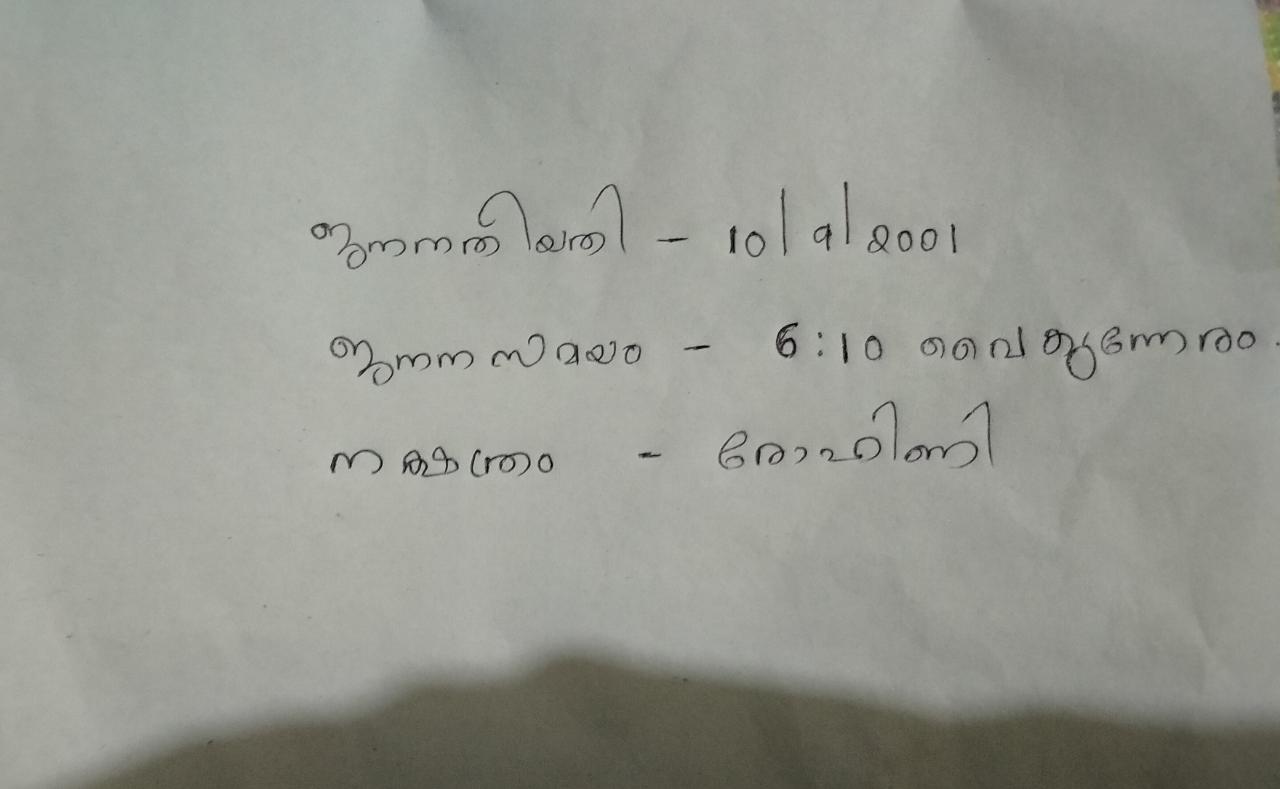 ജനനതീയതി - 10/9/2001
ജനന സമയം - 6:10 വൈകുന്നേരം.
നക്ഷത്രം - രോഹിണി